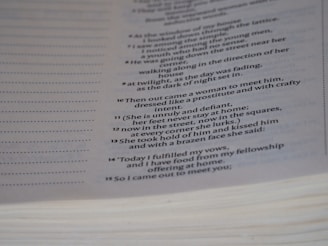 6 At the window of my house
I looked down through the lattice.
7 I saw among the simple,
I noticed among the young men,
a youth who had no sense.
8 He was going down the street near her
corner,
walking along in the direction of her
house
9 at twilight, as the day was fading,
as the dark of night set in.
10 Then out came a woman to meet him,
dressed like a prostitute and with crafty
intent.
11 (She is unruly and defiant,
her feet never stay at home;
12 now in the street, now in the squares,
at every corner she lurks.)
13 She took hold of him and kissed him
and with a brazen face she said:
14 "Today I fulfilled my vows,
and I have food from my fellowship
offering at home.
15 So I came out to meet you;